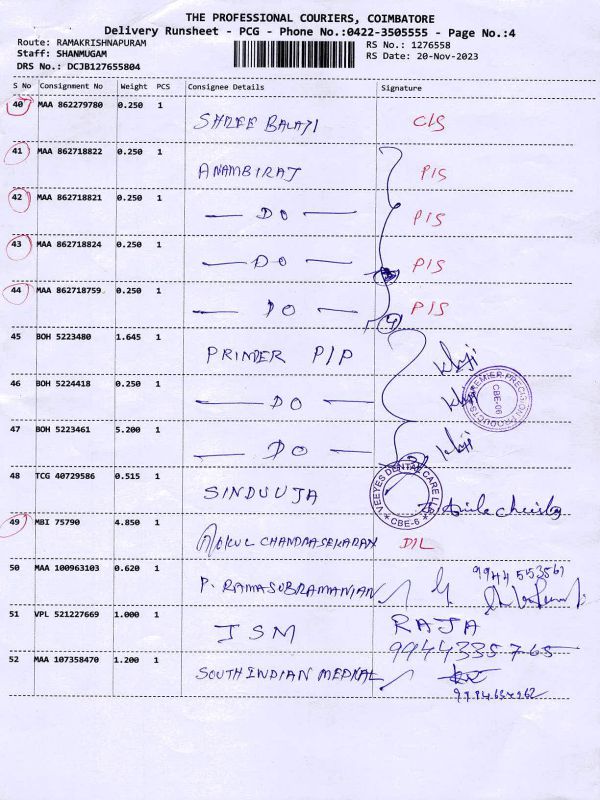 THE PROFESSIONAL COURIERS, COIMBATORE
Delivery Runsheet - PCG - Phone No.:0422-3505555 - Page No.:4
Route: RAMAKRISHNAPURAM RS No.: 1276558
Staff: SHANMUGAM RS Date: 20-Nov-2023
DRS No.: DCJB127655804
S No Consignment No Weight PCS Consignee Details Signature
40 MAA 862279780 0.250 1 SHREE BALAJI C/S
41 MAA 862718822 0.250 1 ANAMBIRAJ P/S
42 MAA 862718821 0.250 1 — DO — P/S
43 MAA 862718824 0.250 1 — DO — P/S
44 MAA 862718759 0.250 1 — DO — P/S
4
45 BOH 5223480 1.645 1 PRIMIER P/P
46 BOH 5224418 0.250 1 — DO —
PREMIER PRECISION PRODUCTS
CBE-06
47 BOH 5223461 5.200 1 — DO —
48 TCG 40729586 0.515 1 SINDUUJA
VEEYES DENTAL CARE
CBE-6
49 MBI 75790 4.850 1 GOKUL CHANDRASEKARAN D/L
50 MAA 100963103 0.620 1 P. RAMASUBRAMANIAN
51 VPL 521227669 1.000 1 JSM RAJA
9944335765
52 MAA 107358470 1.200 1 SOUTH INDIAN MEDICAL